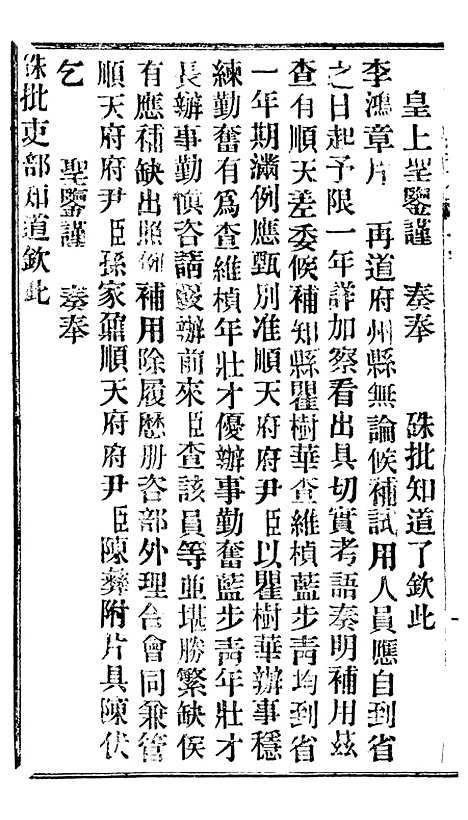 皇上聖鑒謹　奏奉　硃批知道了欽此
李鴻章片　再道府州縣無論候補試用人員應自到省
之日起予限一年詳加察看出具切實考語奏明補用茲
查有順天差委候補知縣瞿樹華查維楨藍步青均到省
一年期滿例應甄別准順天府府尹臣以瞿樹華辦事穩
練勤奮有爲查維楨年壯才優辦事勤奮藍步青年壯才
長辦事勤慎咨請覈辦前來臣查該員等亟堪勝繁缺俟
有應補缺出照例補用除履歷册咨部外理合會同兼管
順天府府尹臣孫家鼐順天府府尹臣陳彝附片具陳伏
乞　聖鑒謹　奏奉
硃批吏部知道欽此